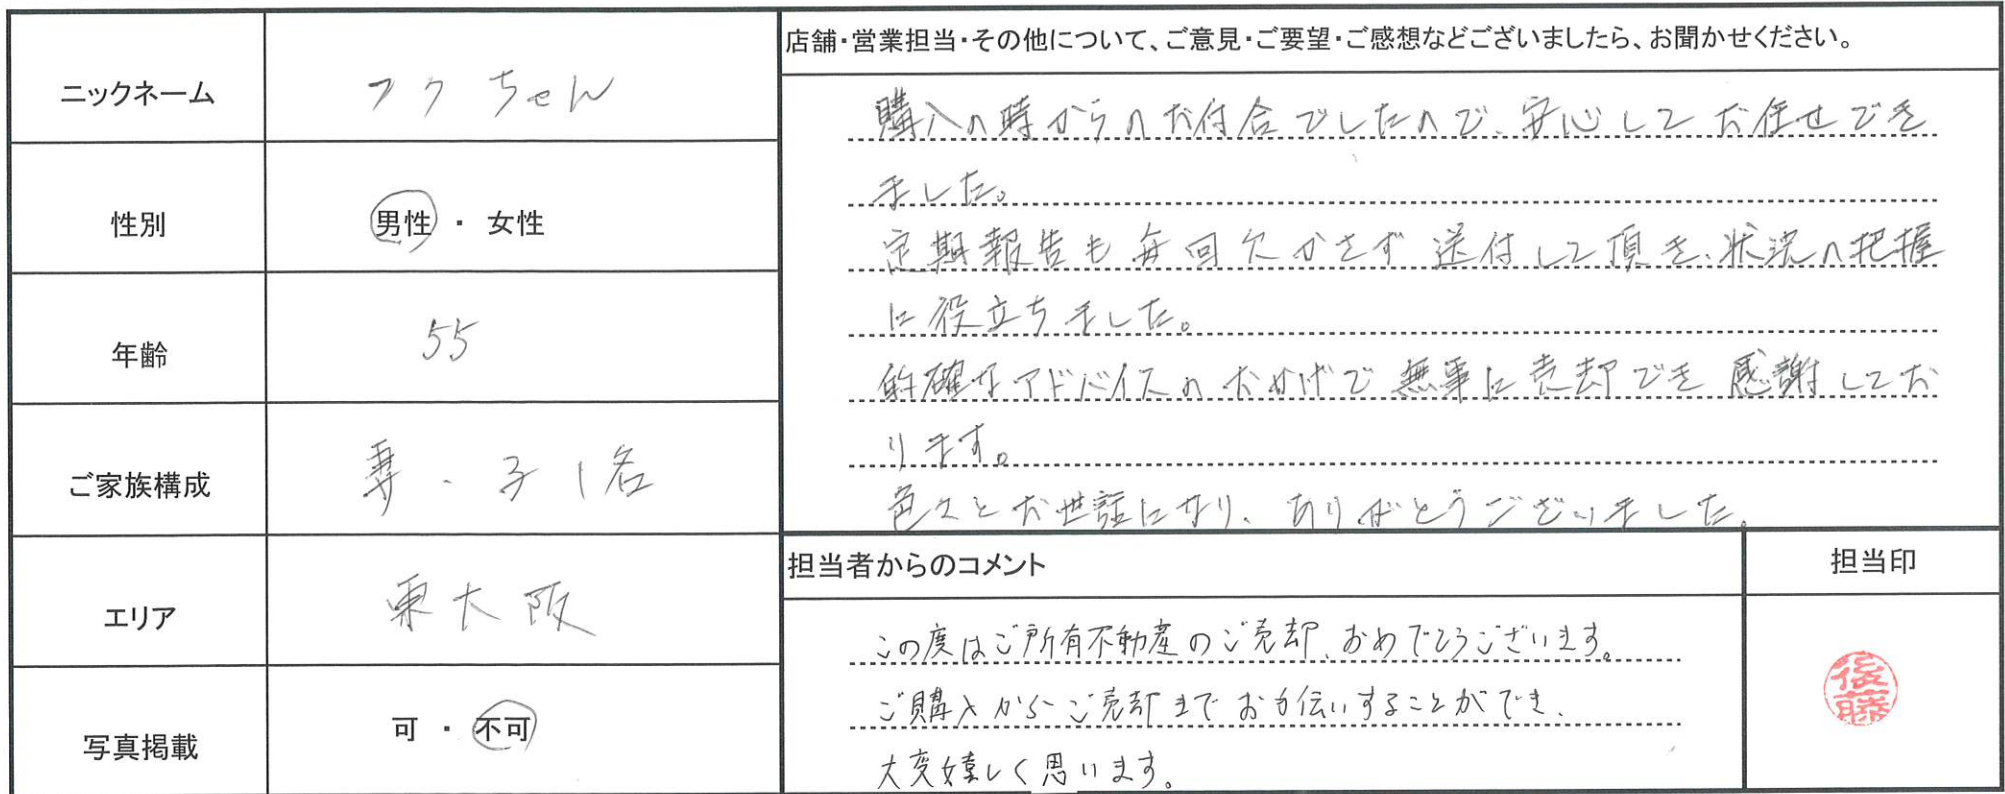 ニックネーム
フクちゃん
性別
男性 ・ 女性
年齢
55
ご家族構成
妻・子1名
エリア
東大阪
写真掲載
可 ・ 不可
店舗・営業担当・その他について、ご意見・ご要望・ご感想などございましたら、お聞かせください。
購入の時からのお付合でしたので、安心してお任せでき
ました。
定期報告も毎回欠かさず送付して頂き、状況の把握
に役立ちました。
的確なアドバイスのおかげで無事に売却でき感謝してお
ります。
色々とお世話になり、ありがとうございました。
担当者からのコメント
この度はご所有不動産のご売却、おめでとうございます。
ご購入からご売却までお手伝いすることができ、
大変嬉しく思います。
担当印
後藤